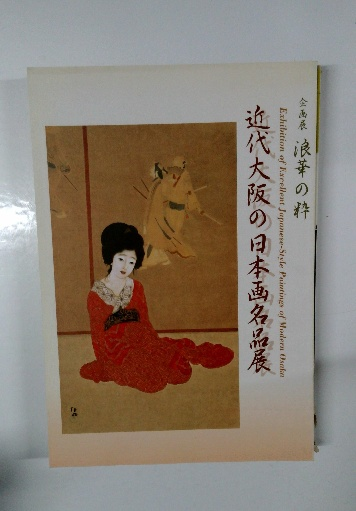 企画展 浪華の粹
Exhibition of Excellent Japanese-Style Paintings of Modern Osaka
近代大阪の日本画名品展